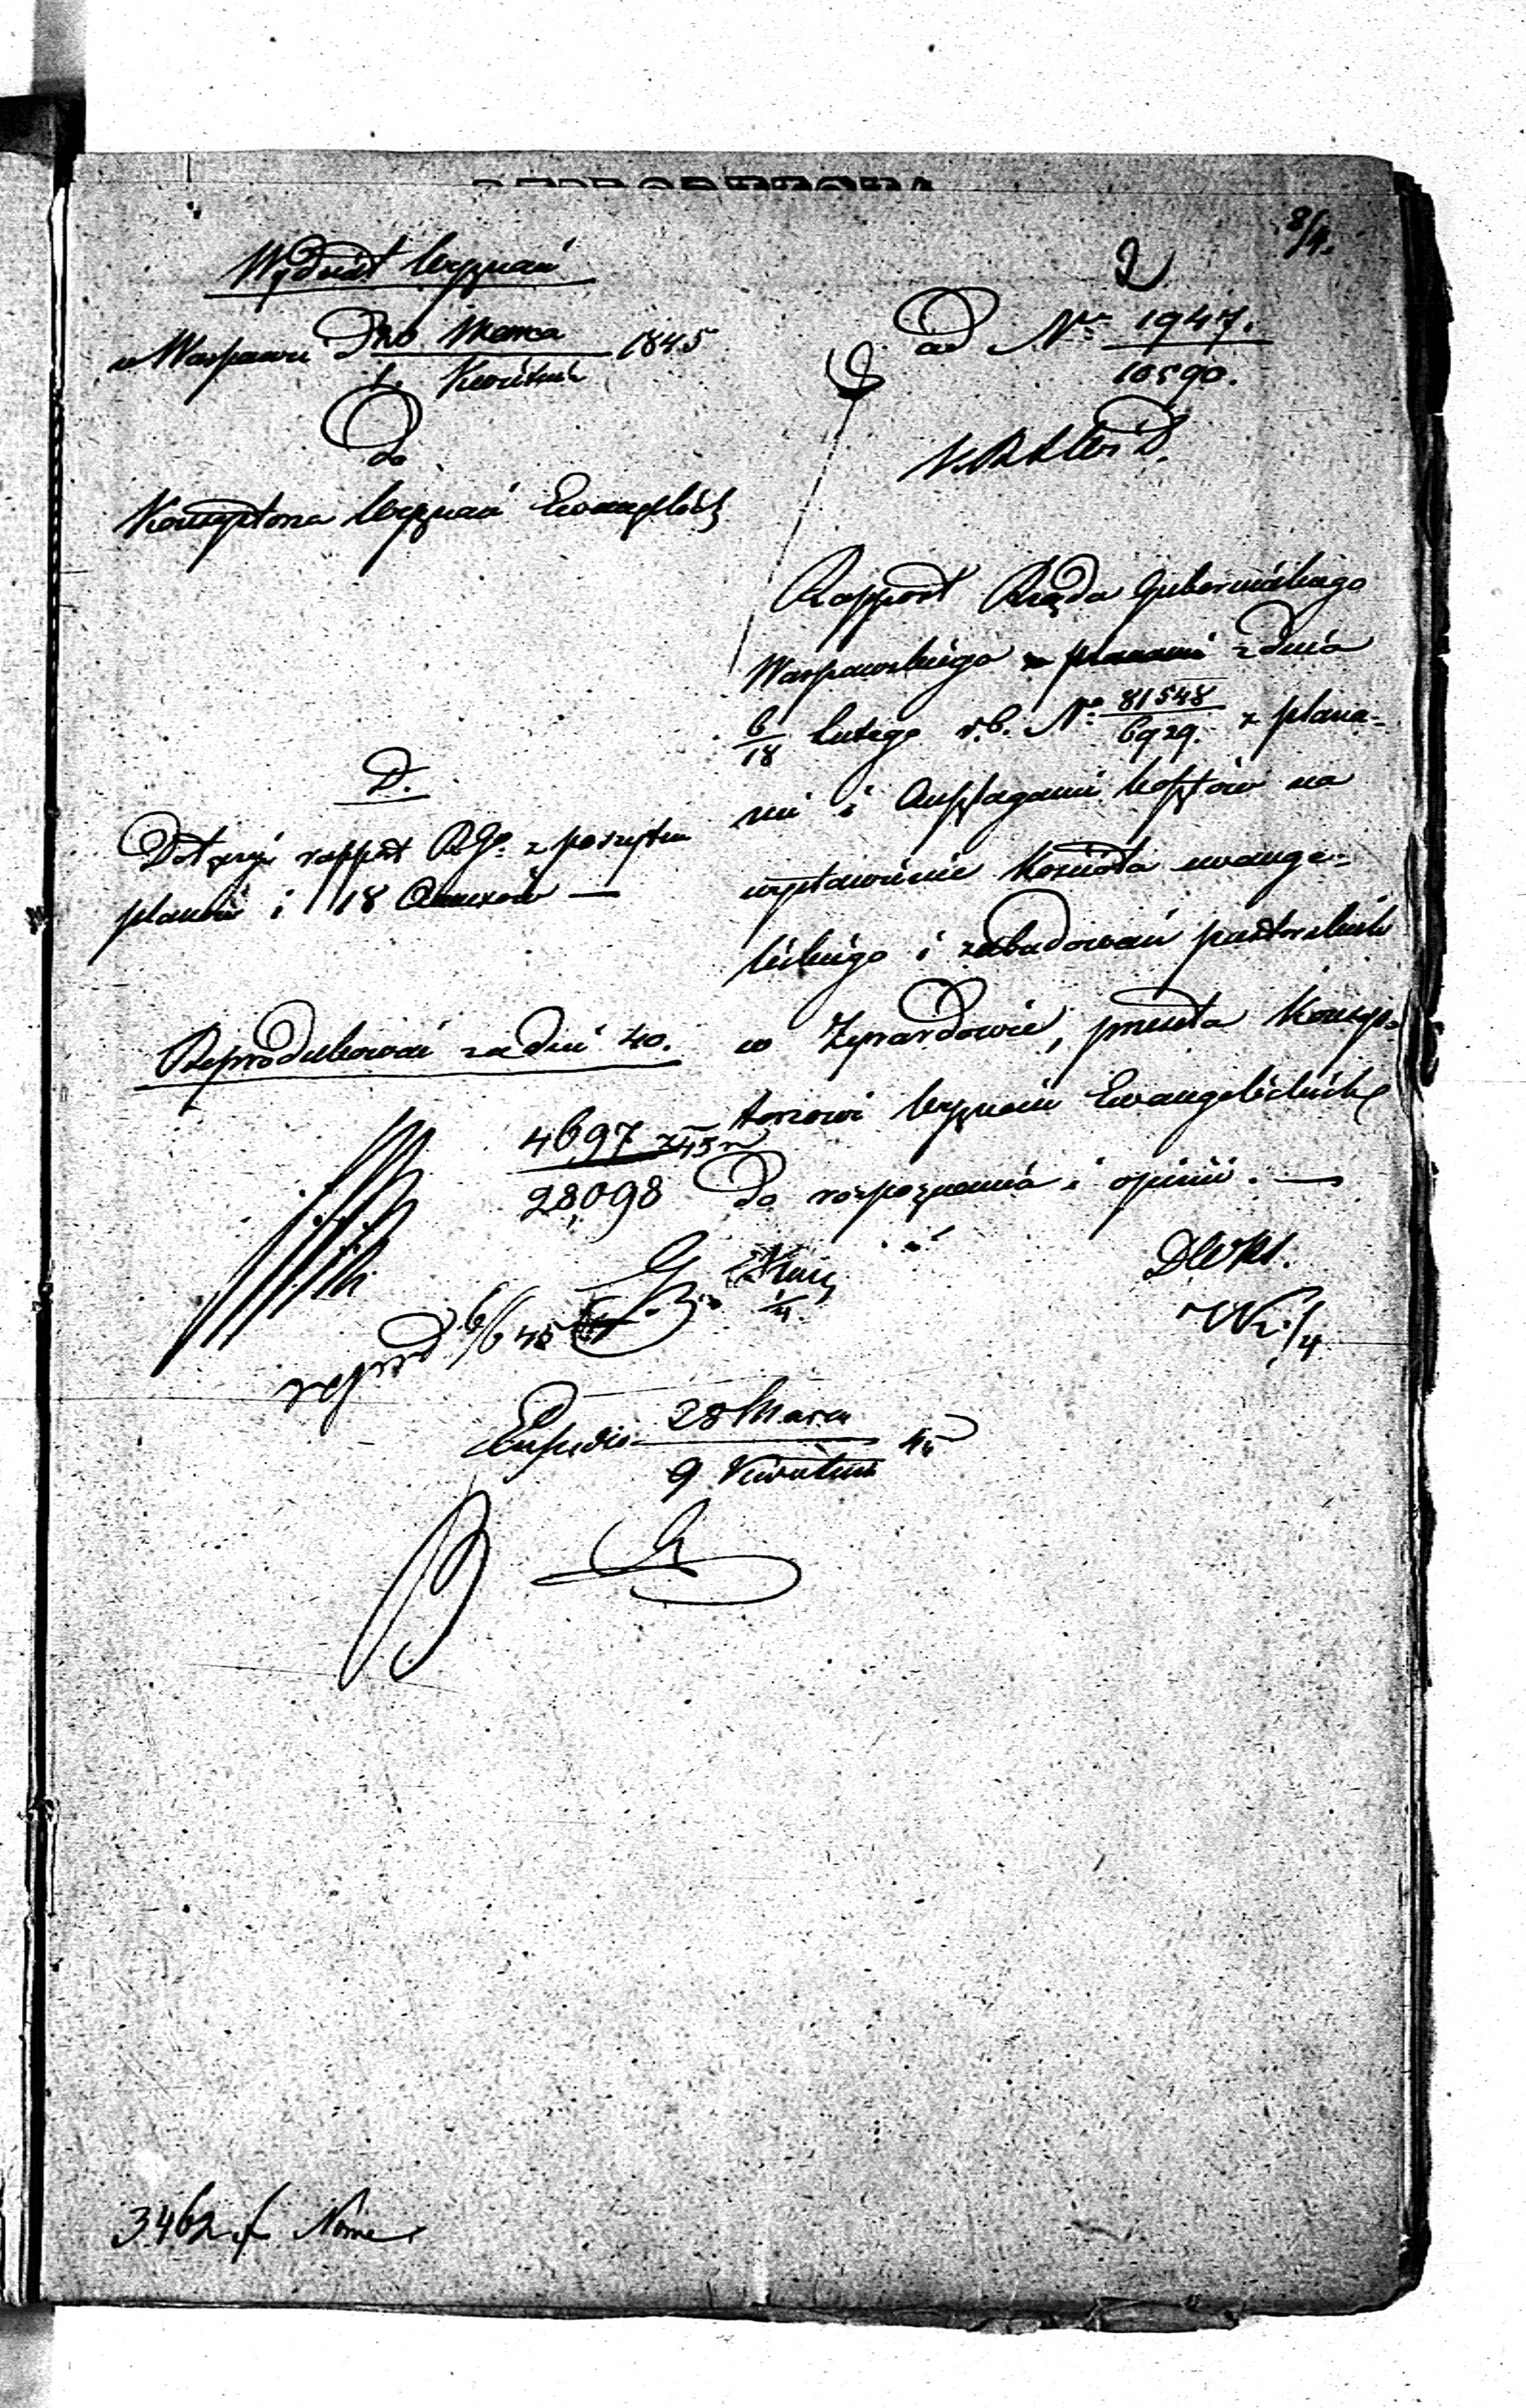 8/4.
2
Wydział Wyznań
w Warszawie D. 20 Marca 1845
1. Kwietnia
Do
Konsystorza Wyznań Ewangelick
ad Nr 1947.
10590.
K.R.S.W.i D.
Rapport Rządu Gubernialnego
Warszawskiego z dnia
6/18 Lutego r.b. Nr 81548/6929. z plana-
mi i Anszlagami kosztów na
wystawienie Kościoła ewange-
lickiego i zabudowań pastorskich
w Żyrardowie, przesyła Konsys-
torzowi Wyznań Ewangelickich
do rozpoznania i opinii. —
D.
Dołączyć rapport R.G. z poszytem
planów i 18 Annexów —
Reprodukować za dni 40.
4697 z 45 r
28,098
1/4.
reprod 6/6 45
DWR.
1/4
Expedio 28 Marca 45
9. Kwietnia
3462